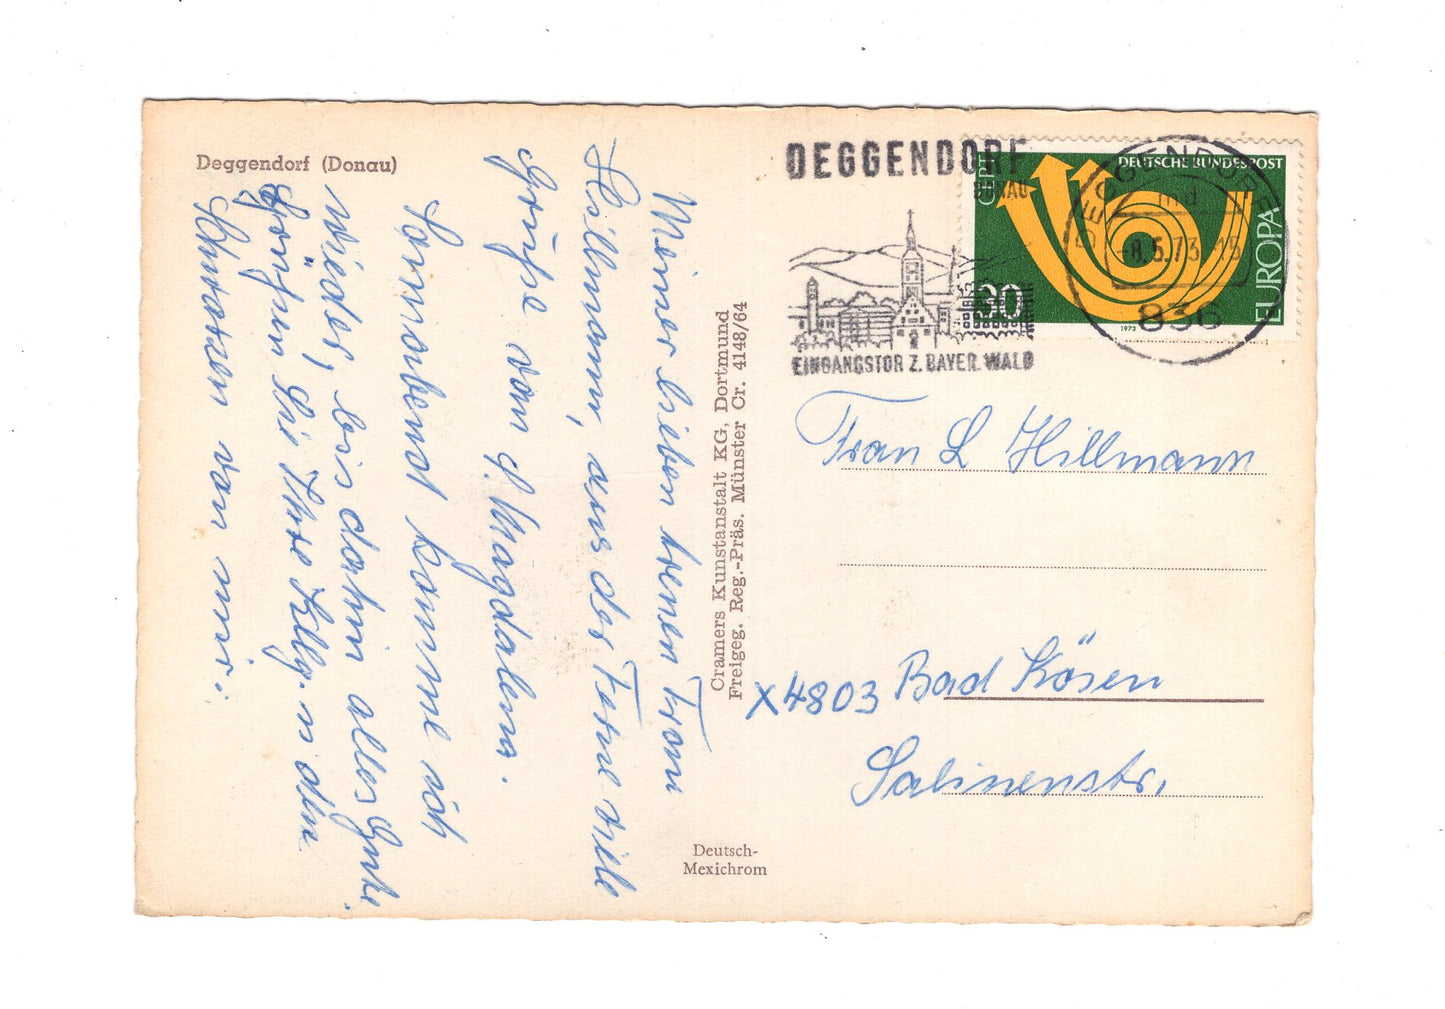 Deggendorf (Donau)
Meiner lieben treuen Frau
Hillmann, aus der Ferne viele
Grüße von d. Magdalena.
Sonnabend komme ich
wieder, bis dahin alles Gute.
Grüßen Sie Ihre Kllg. u dem
Schwarzen von mir.
Cramers Kunstanstalt KG, Dortmund
Freigeg. Reg.-Präs. Münster Cr. 4148/64
Deutsch-
Mexichrom
DEGGENDORF
DONAU
EINGANGSTOR Z. BAYER. WALD
CEPT
DEUTSCHE BUNDESPOST
EUROPA
30
1973
DEGGENDORF
md
-8.5.73-15
836
Frau L Hillmann
X4803 Bad Kösen
Salinenstr.